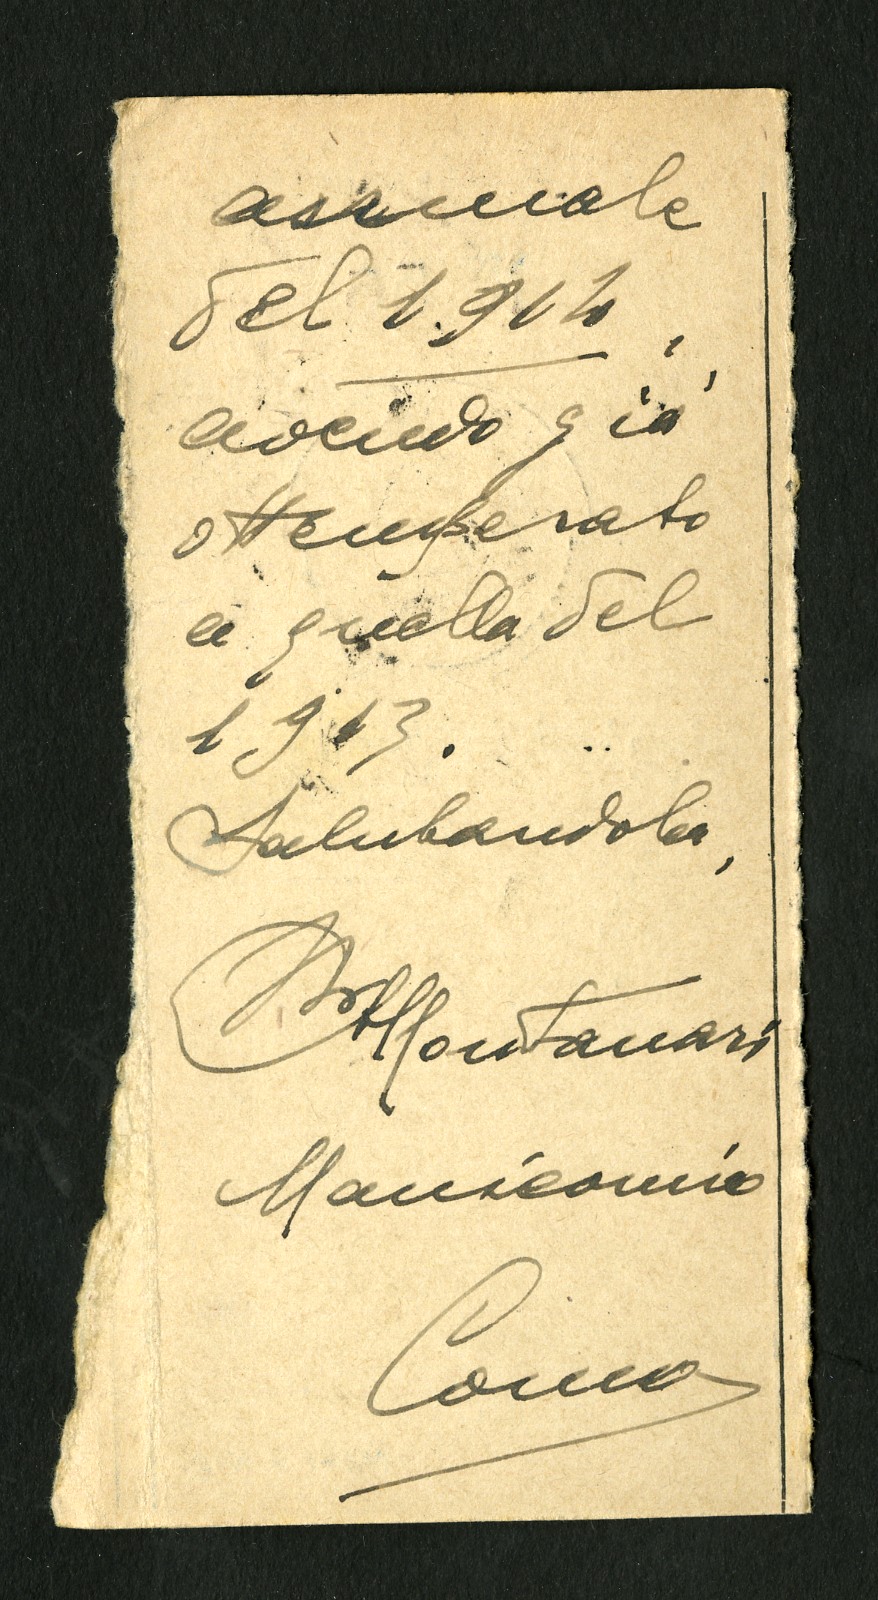 annuale
del 1914,
avendo già
ottemperato
a quella del
1913.
Salutandola,
Montanari
Manicomio
Como